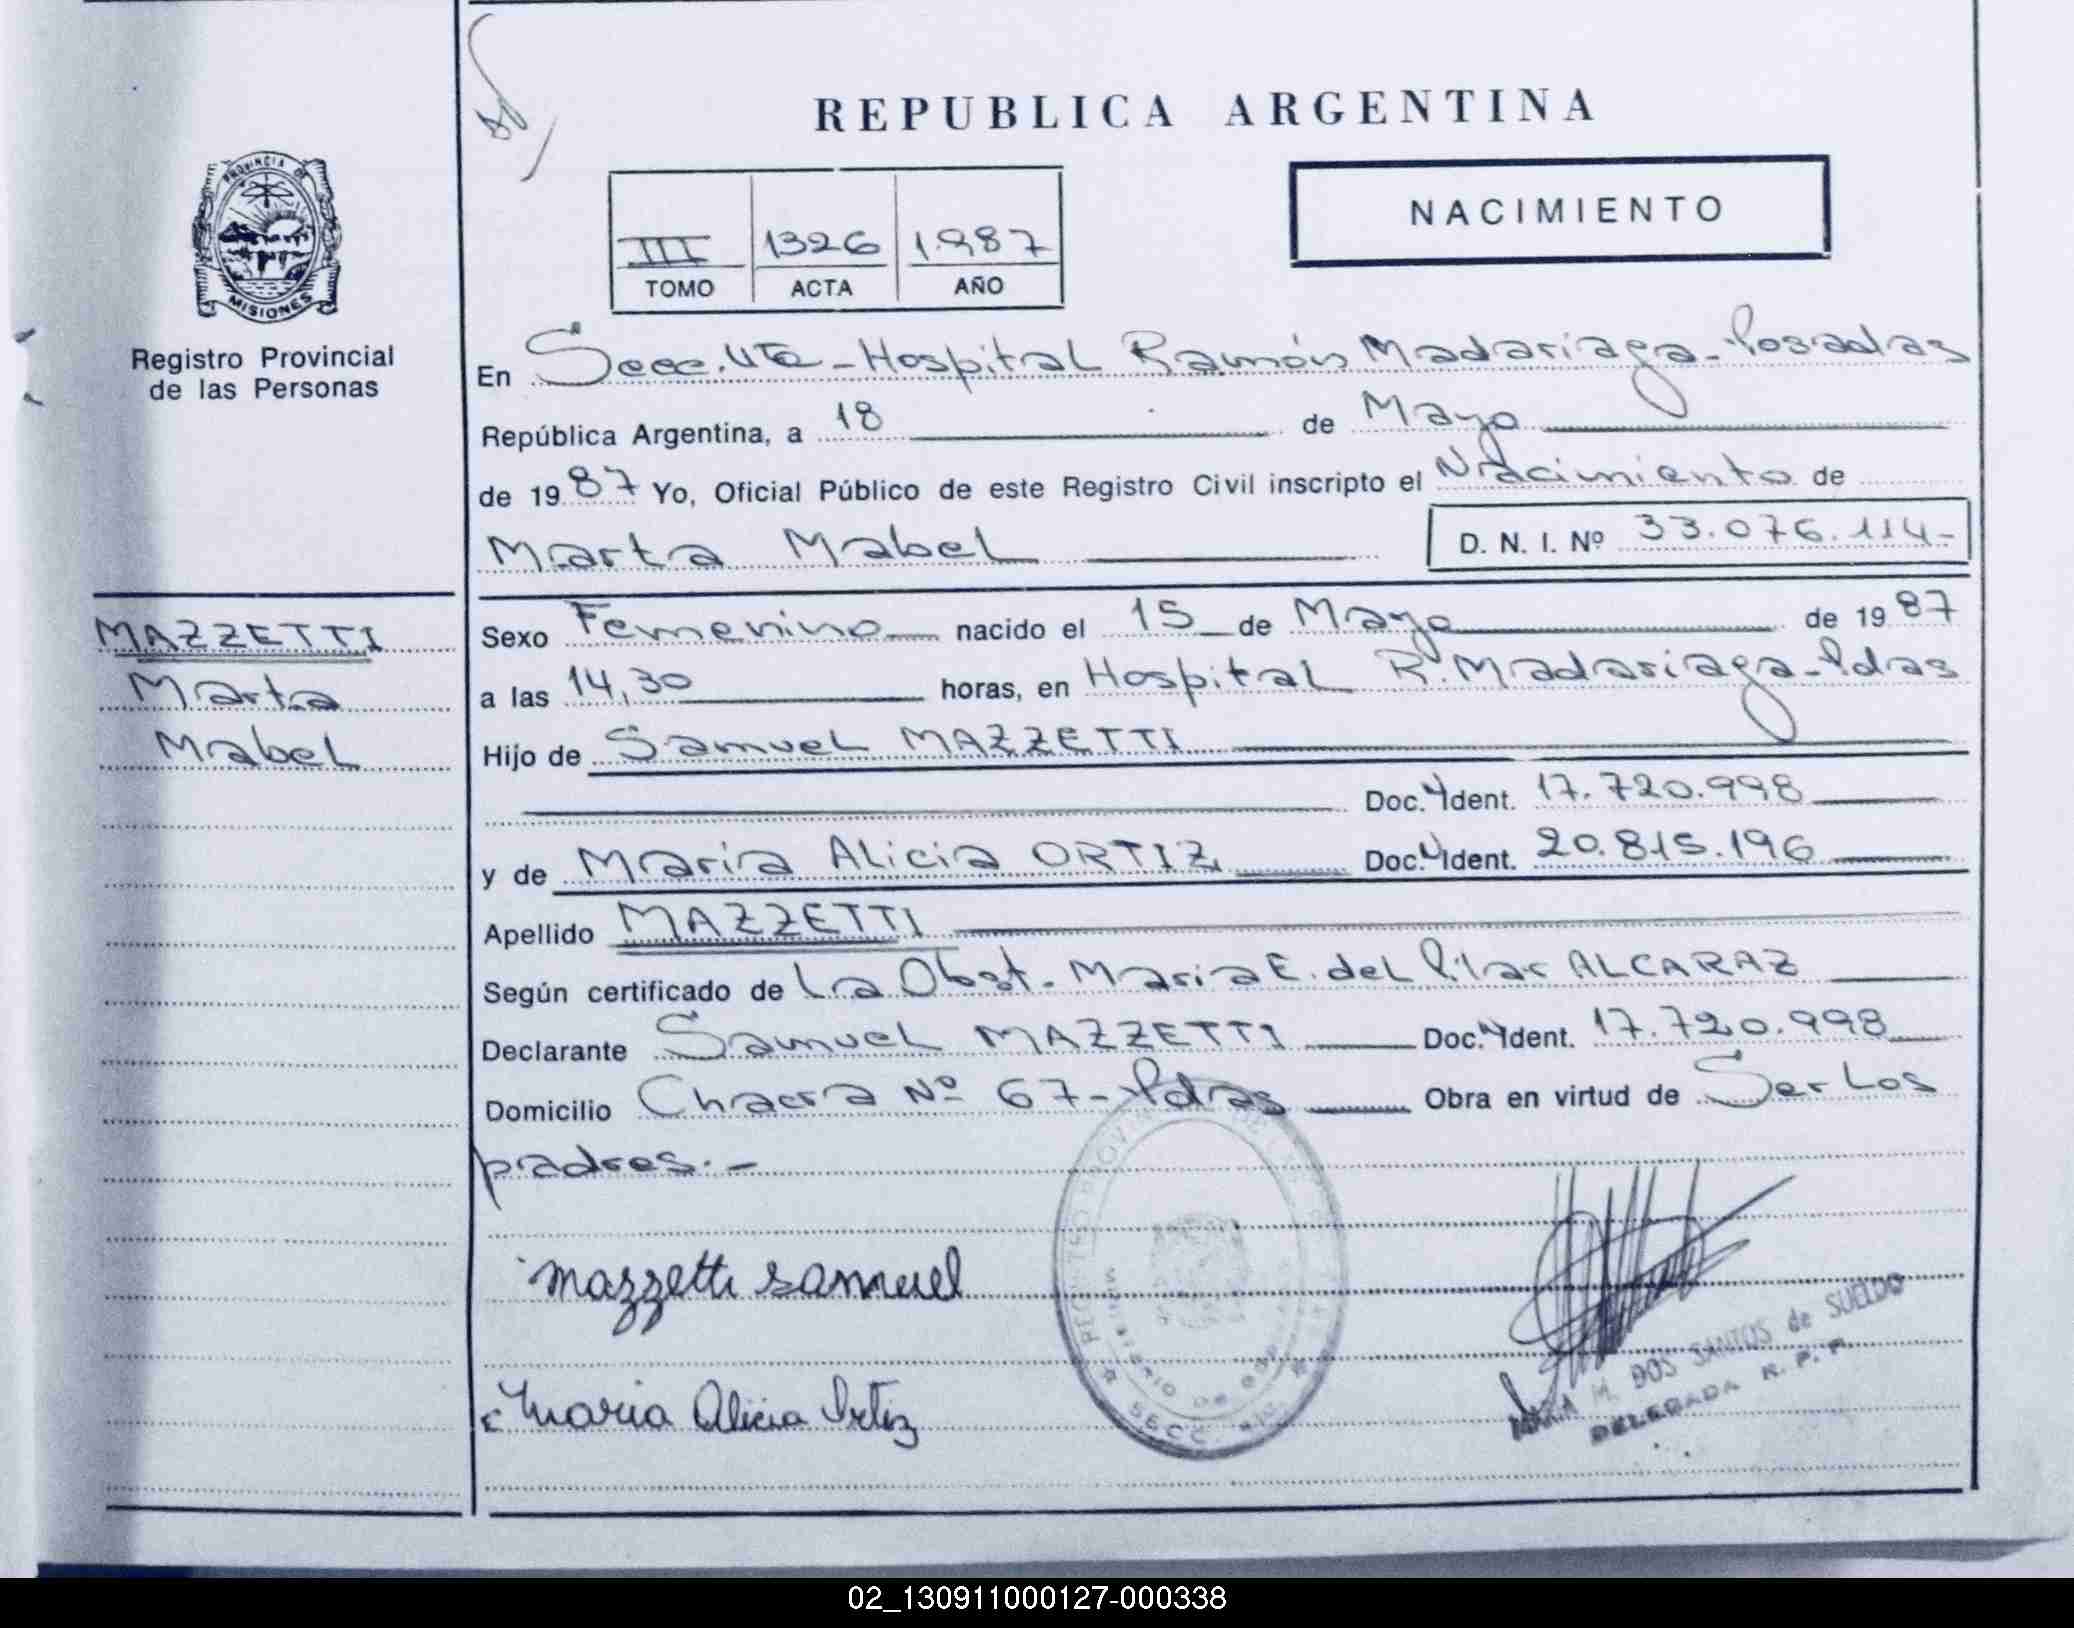 REPUBLICA ARGENTINA
NACIMIENTO
III 1326 1.987
TOMO ACTA AÑO
PROVINCIA DE
MISIONES
Registro Provincial
de las Personas
En Secc. 4ta - Hospital Ramón Madariaga - Posadas
República Argentina, a 18 de Mayo
de 1987 Yo, Oficial Público de este Registro Civil inscripto el Nacimiento de
Marta Mabel D. N. I. Nº 33.076.114-
MAZZETTI
Marta
Mabel
Sexo Femenino nacido el 15 de Mayo de 1987
a las 14,30 horas, en Hospital R. Madariaga - Pdas
Hijo de Samuel MAZZETTI
Doc. Ident. 17.720.998
y de Maria Alicia ORTIZ Doc. Ident. 20.815.196
Apellido MAZZETTI
Según certificado de La Obst. Maria E. del Pilar ALCARAZ
Declarante Samuel MAZZETTI Doc. Ident. 17.720.998
Domicilio Chacra Nº 67 - Pdas Obra en virtud de Ser Los
padres.-
Mazzetti Samuel
Maria Alicia Ortiz
M. DOS SANTOS de SUELDO
DELEGADA R. P. P.
02_130911000127-000338